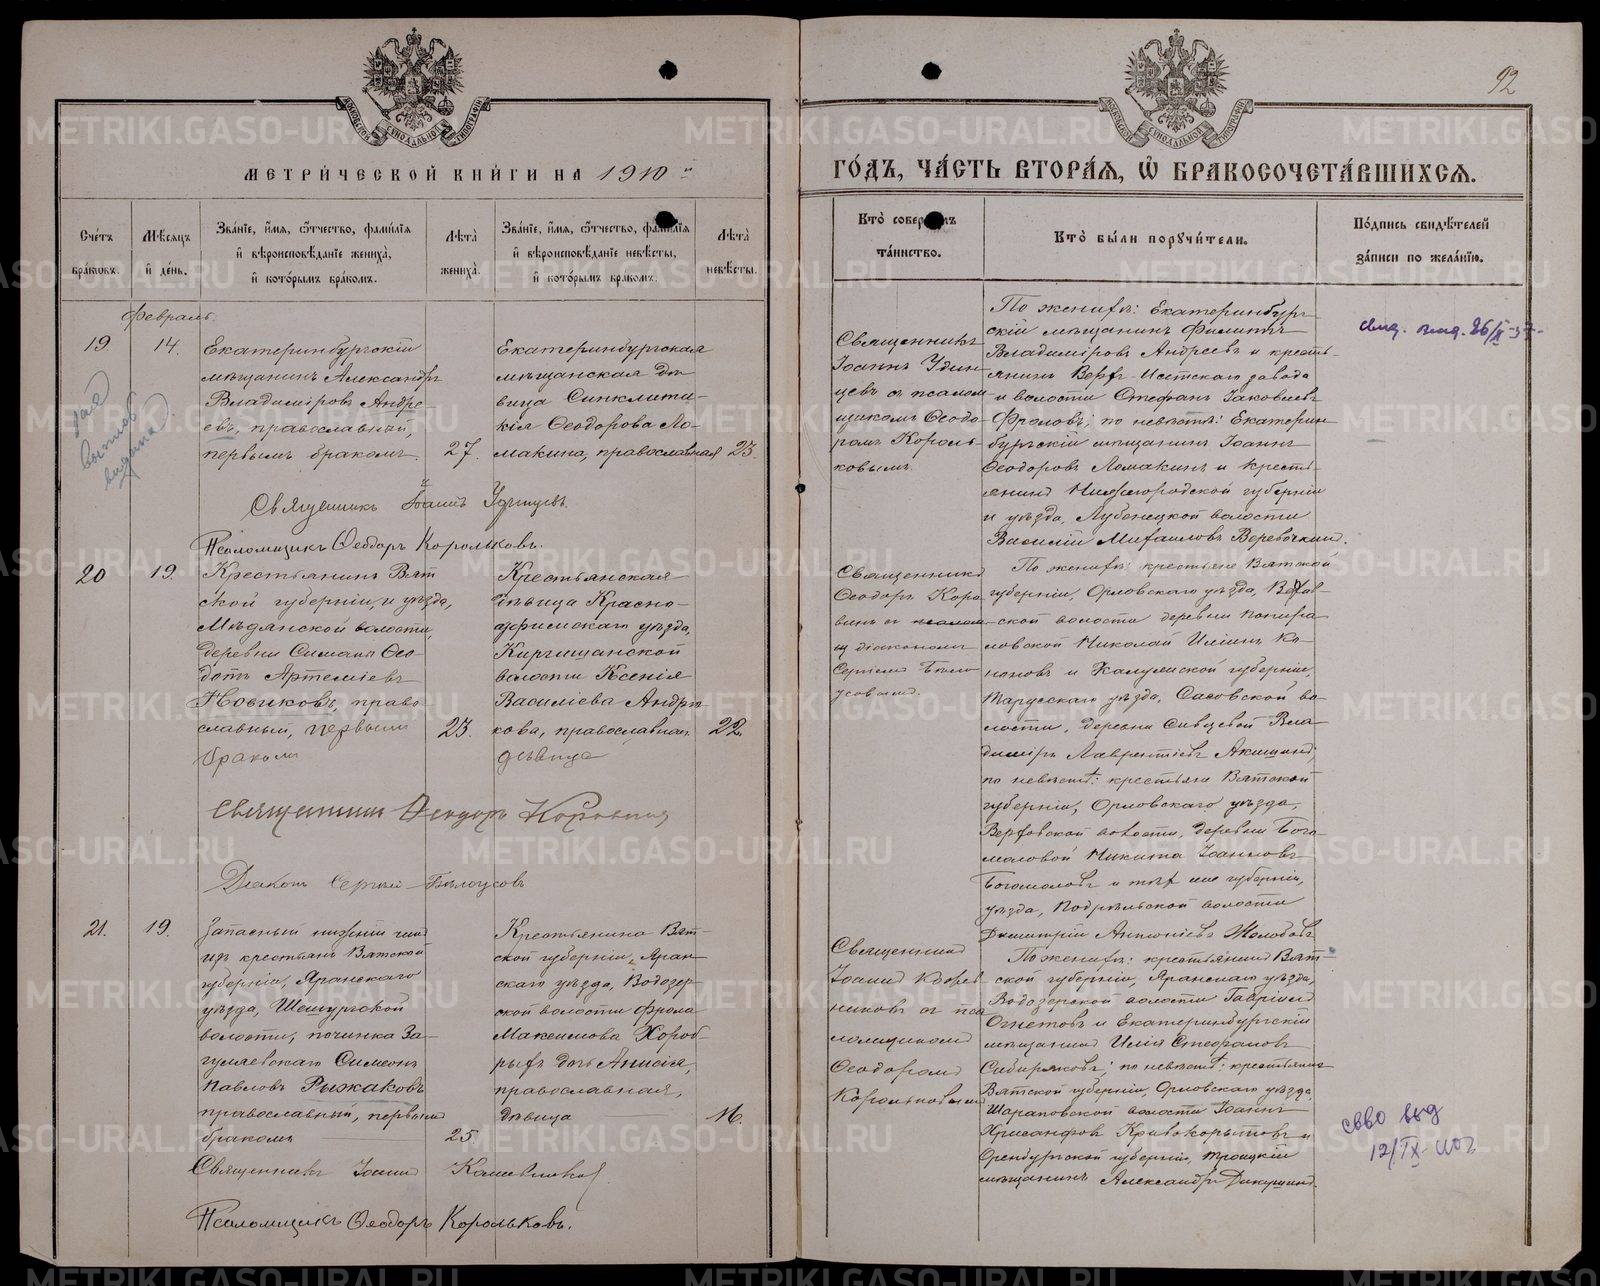 92
МЕТРИ́ЧЕСКОЙ КНИ́ГИ НА 1910
ГО́ДЪ, ЧА́СТЬ ВТОРА́Я, Ѽ БРАКОСОЧЕТА́ВШИХСЯ.
Сче́тъ бра́ковъ.
Мѣ́сяцъ и҆ де́нь.
Зва́нїе, и҆́мя, ѻ҆́тчество, фами́лїя
и҆ вѣроисповѣ́данїе жениха̀,
и҆ кото́рымъ бра́комъ.
Лѣта̀ жениха̀.
Зва́нїе, и҆́мя, ѻ҆́тчество, фами́лїя
и҆ вѣроисповѣ́данїе невѣ́сты,
и҆ кото́рымъ бра́комъ.
Лѣта̀ невѣ́сты.
Кто̀ соверша́лъ
та́инство.
Кто̀ бы́ли порꙋчи́тели.
По́дпись свидѣ́телей
за́писи по жела́нїю.
Февраль.
19
14.
Екатеринбургскій
мѣщанинъ Александръ
Владиміровъ Андре-
евъ, православный,
первымъ бракомъ.
27.
Екатеринбургская
мѣщанская дѣ
вица Синклити-
кія Ѳеодорова Ло-
макина, православная
23.
Священникъ
Іоаннъ Удин
цевъ съ псалом
щикомъ Ѳеодо
ромъ Король
ковымъ.
По женихѣ: Екатеринбург
скій мѣщанинъ Филиппъ
Владиміровъ Андреевъ и кресть-
янинъ Верхъ-Исетскаго завода
и волости Стефанъ Іаковлевъ
Фроловъ; по невѣстѣ: Екатерин
бургскій мѣщанинъ Іоаннъ
Ѳеодоровъ Ломакинъ и кресть-
янинъ Нижегородской губерніи
и уѣзда,
волости
Василій Михаиловъ Веревочкинъ.
выпись
выдана
Священникъ Іоаннъ Удинцевъ.
Псаломщикъ Ѳеодоръ Корольковъ.
20
19.
Крестьянинъ Вят
ской губерніи, и уѣзда,
Мѣдянской волости,
деревни
Ѳео
дотъ Артеміевъ
Новиковъ, право
славный, первымъ
бракомъ
23.
Крестьянская
дѣвица Красно-
уфимскаго уѣзда,
Киргишанской
волости Ксенія
Васильева Андрю
кова, православная
дѣвица
22.
Священникъ
Ѳеодоръ Коро
винъ съ
діакономъ
Сергіемъ Бѣло
усовымъ.
По женихѣ: крестьяне Вятской
губерніи, Орловскаго уѣзда, Верхов-
ской волости деревни
Николай Иліинъ Ко-
ноновъ и Калужской губерніи,
Тарусскаго уѣзда,
во-
лости, деревни Сивцевой Вла
диміръ Лаврентіевъ Акишинъ;
по невѣстѣ: крестьяне Вятской
губерніи, Орловскаго уѣзда,
Верховской волости, деревни Бого-
моловой Никита Іоанновъ
Богомоловъ и той же губерніи,
уѣзда, Подрѣльской волости
Димитрій Антоніевъ Жолобовъ
Священникъ Ѳеодоръ Коровинъ
Діаконъ Сергій Бѣлоусовъ
21.
19.
Запасный нижній чинъ
изъ крестьянъ Вятской
губерніи, Яранскаго
уѣзда, Шешургской
волости, починка За-
гуляевскаго Симеонъ
Павловъ Рыжаковъ
православный, первымъ
бракомъ
25.
Крестьянина Вят-
ской губерніи, Яран-
скаго уѣзда, Водозер-
ской волости Фрола
Максимова Хороб-
рыхъ дочь Анисія,
православная,
дѣвица
16.
Священникъ
Іоаннъ
съ пса
ломщикомъ
Ѳеодоромъ
Корольковымъ
По женихѣ: крестьянинъ Вят-
ской губерніи, Яранскаго уѣзда,
Водозерской волости Гавріилъ
Огнетовъ и Екатеринбургскій
мѣщанинъ Илія Стефановъ
Сибиряковъ; по невѣстѣ: крестьянинъ
Вятской губерніи, Орловскаго уѣзда,
Шараповской волости Іоаннъ
Хрисанфовъ Кривокорытовъ и
Оренбургской губерніи, Троицкій
мѣщанинъ Александръ
Священникъ Іоаннъ
Псаломщикъ Ѳеодоръ Корольковъ.
METRIKI.GASO-URAL.RU